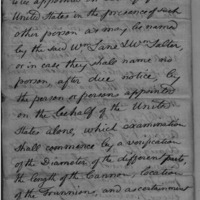 was appointed on behalf of the
United States in the presence of such
other person as may be named
by the said Wm Lane & Wm Salter
or in case they shall name no
person after due notice, by
the person or persons appointed
on the behalf of the United
States alone, which examination
shall commence by a verification
of the Diameter of the different parts,
the length of the Cannon, Location
of the Trunnions, and ascertainment